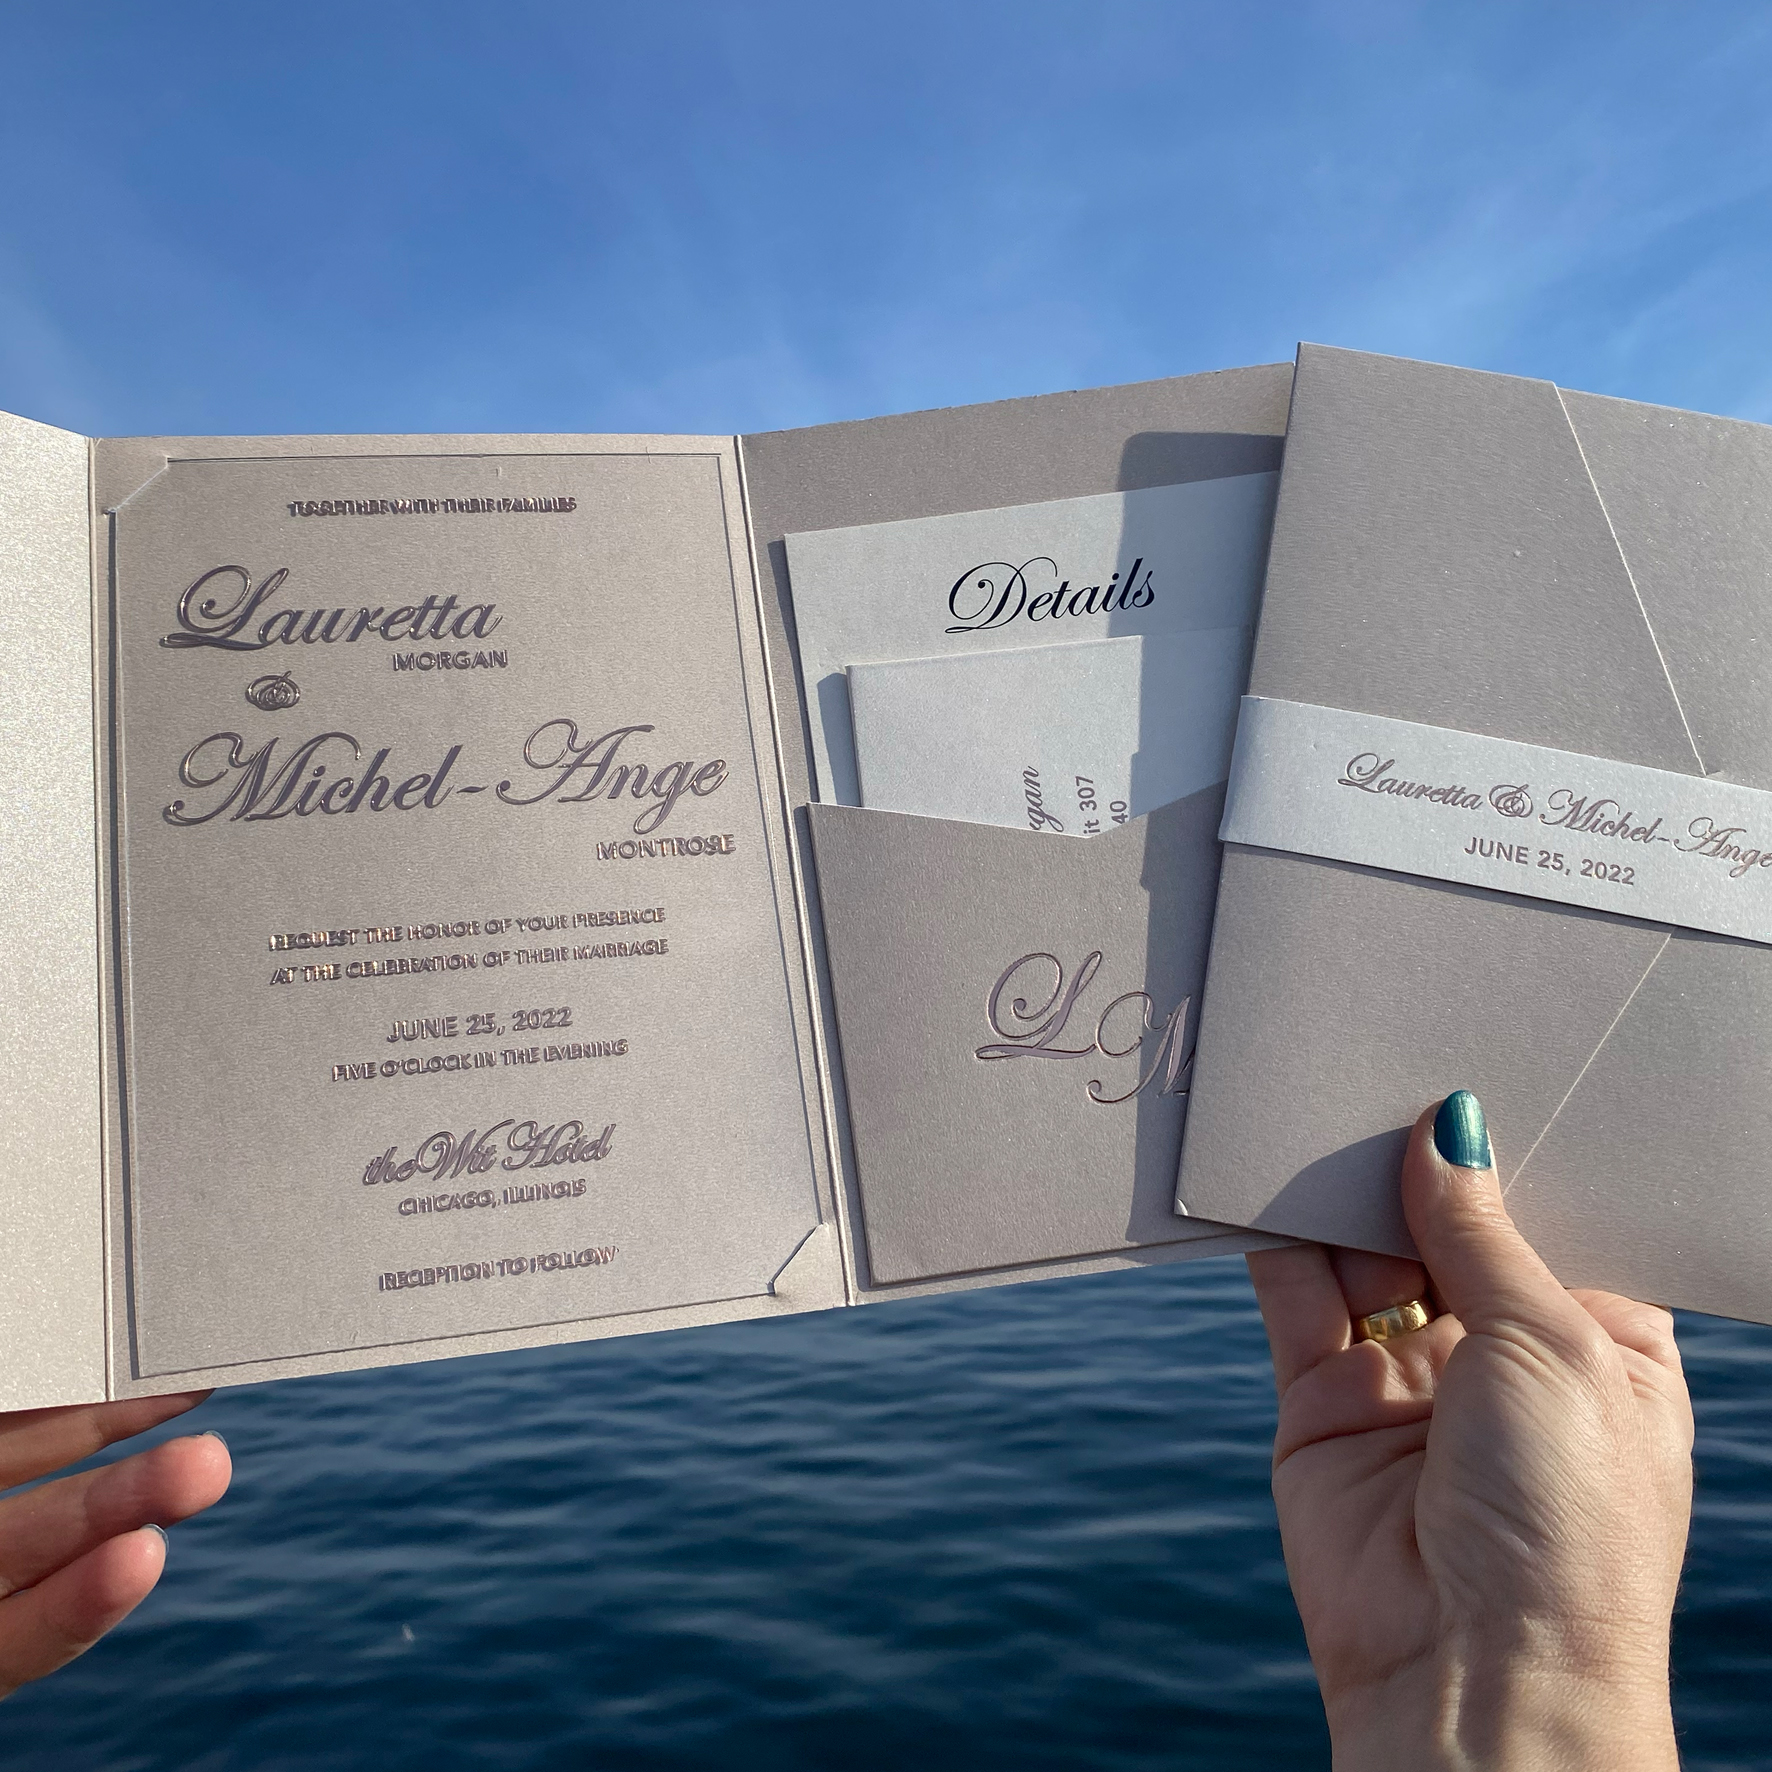 TOGETHER WITH THEIR FAMILIES
Lauretta
MORGAN
&
Michel-Ange
MONTROSE
REQUEST THE HONOR OF YOUR PRESENCE
AT THE CELEBRATION OF THEIR MARRIAGE
JUNE 25, 2022
FIVE O'CLOCK IN THE EVENING
theWit Hotel
CHICAGO, ILLINOIS
RECEPTION TO FOLLOW
Details
rgan
it 307
40
L M
Lauretta & Michel-Ange
JUNE 25, 2022